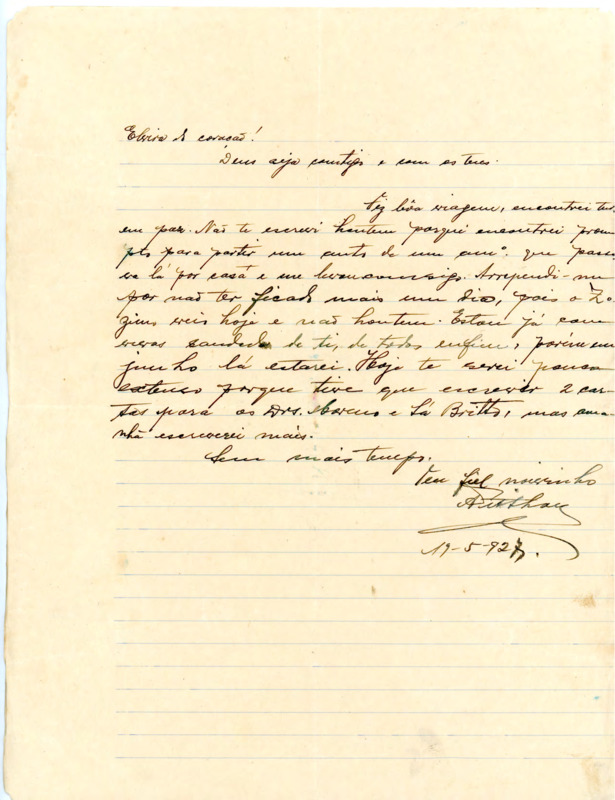 Elvira do coração!
Deus seja comtigo e com os teus.
Fiz bôa viagem, encontrei tu
em paz. Não te escrevi hontem porque encontrei prom
pto para partir um auto de um amº. que passa
va lá por casa e me levou comsigo. Arrependi-me
por não ter ficado mais um dia, pois o Zo
zimo veis hoje e não hontem. Estou já com
saudade de ti, de todos enfim, porém em
junho lá estarei. Hoje te serei pouco
extenso porque tive que escrever 2 car-
tas para os Drs. Moreno e Sá Britto, mas ama-
nhã escreverei mais.
Sem mais tempo.
Teu fiel noivinho
19-5-927.